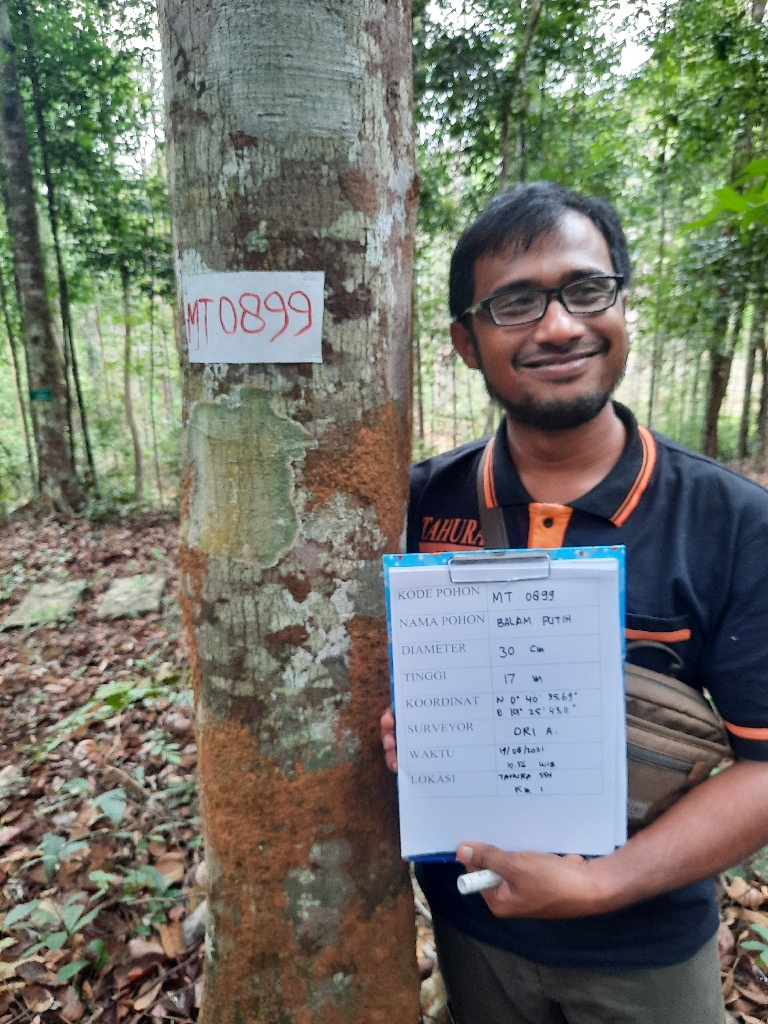 MT 0899
TAHURA
KODE POHON MT 0899
NAMA POHON BALAM PUTIH
DIAMETER 30 Cm
TINGGI 17 m
KOORDINAT N 0° 40' 35.69"
E 101° 25' 43.11"
SURVEYOR ORI A.
WAKTU 19/08/2021
10.56 WIB
LOKASI TAHURA SSH
Km 1